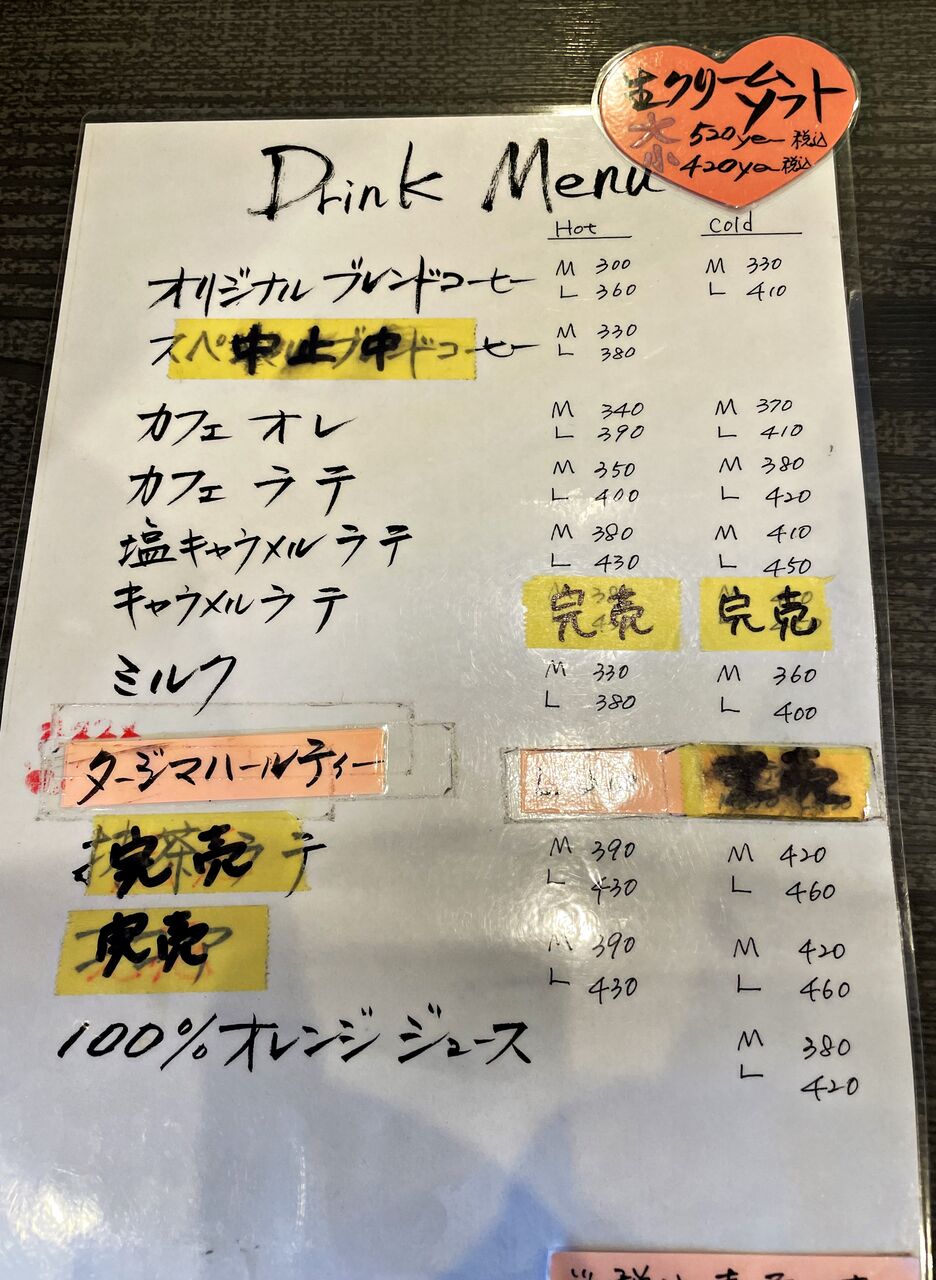 生クリーム
ソフト
大 520yen 税込
小 420yen 税込
Drink Menu
Hot Cold
オリジナル ブレンドコーヒー M 300 M 330
L 360 L 410
中止中 M 330
L 380
カフェ オレ M 340 M 370
L 390 L 410
カフェ ラテ M 350 M 380
L 400 L 420
塩キャラメル ラテ M 380 M 410
L 430 L 450
キャラメル ラテ 完売 完売
ミルク M 330 M 360
L 380 L 400
タージマハールティー 完売
抹茶ラテ 完売 M 390 M 420
L 430 L 460
完売 M 390 M 420
L 430 L 460
100%オレンジ ジュース M 380
L 420